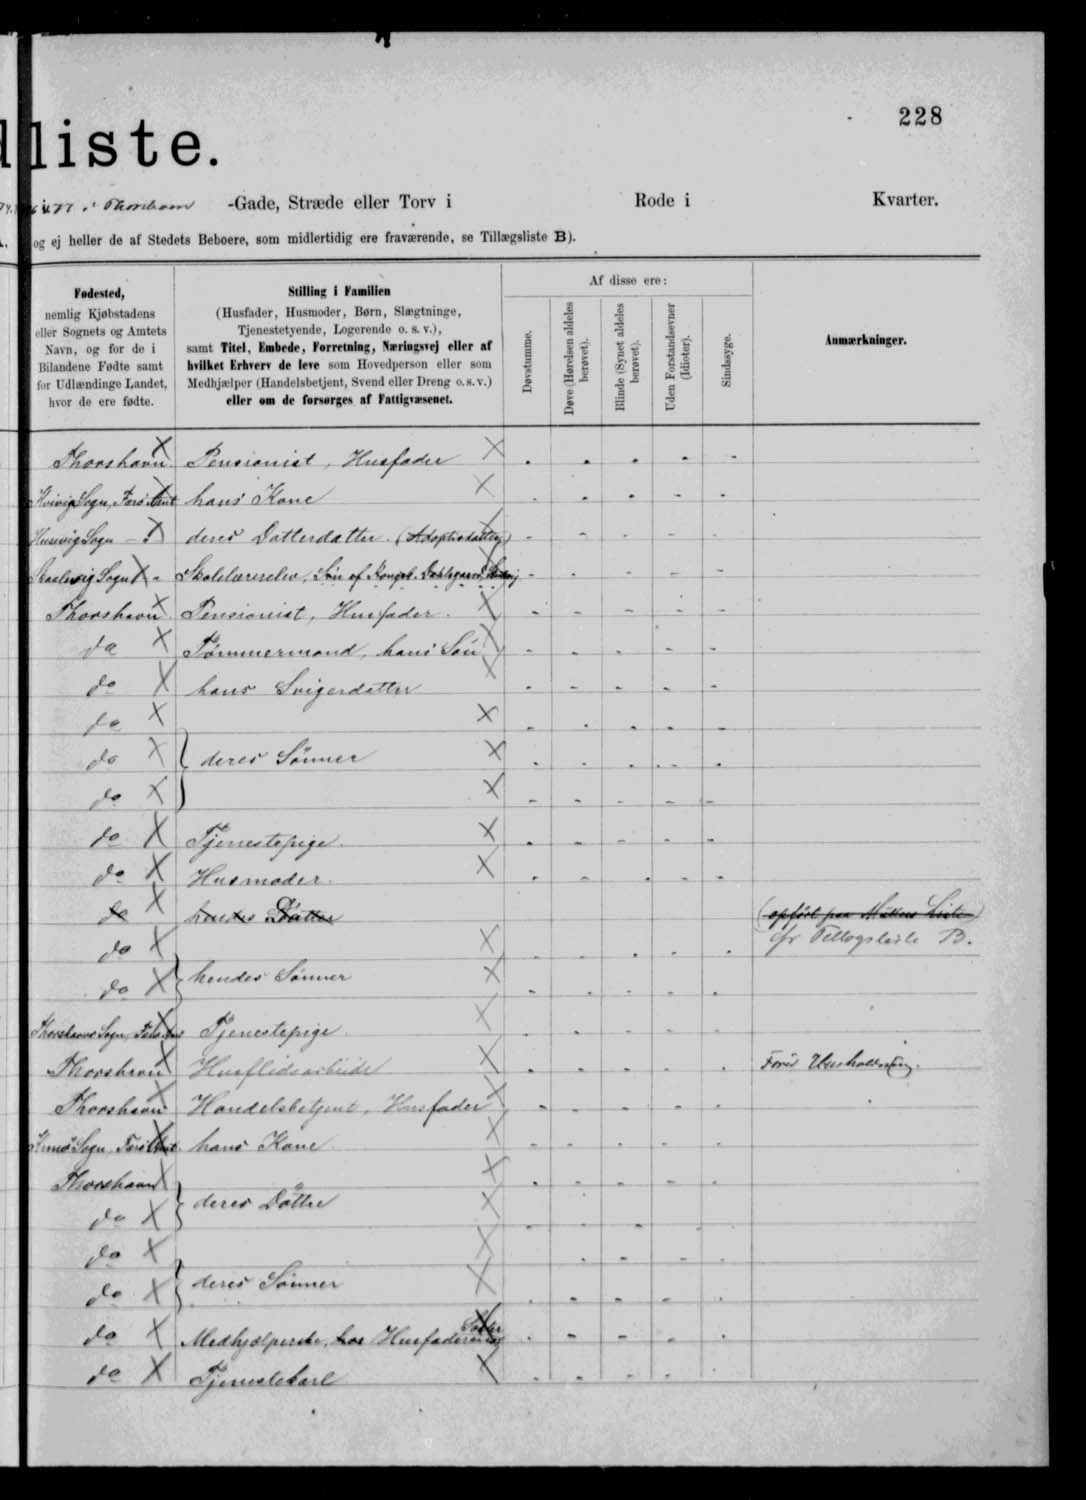 228
liste.
i Thorshavn -Gade, Stræde eller Torv i Rode i Kvarter.
og ej heller de af Stedets Beboere, som midlertidig ere fraværende, se Tillægsliste B).
Fødested,
nemlig Kjøbstadens
eller Sognets og Amtets
Navn, og for de i
Bilandene Fødte samt
for Udlændinge Landet,
hvor de ere fødte.
Stilling i Familien
(Husfader, Husmoder, Børn, Slægtninge,
Tjenestetyende, Logerende o. s. v.),
samt Titel, Embede, Forretning, Næringsvej eller af
hvilket Erhverv de leve som Hovedperson eller som
Medhjælper (Handelsbetjent, Svend eller Dreng o. s. v.)
eller om de forsørges af Fattigvæsenet.
Af disse ere:
Døvstumme.
Døve (Hørelsen aldeles
berøvet).
Blinde (Synet aldeles
berøvet).
Uden Forstandsevner
(Idioter).
Sindssyge.
Anmærkninger.
Thorshavn Pensionist, Husfader
Kvivig Sogn, Færø Amt hans Kone
Husevig Sogn deres Datterdatter (Adoptivdatter)
Sogn Skolelærerelev, Søn af
Thorshavn Pensionist, Husfader
do Tømmermand, hans Søn
do hans Svigerdatter
do
do deres Sønner
do
do Tjenestepige
do Husmoder
do hendes Datter (opført paa Liste)
do Tillægsliste B.
do hendes Sønner
Thorshavns Sogn, Færø Amt Tjenestepige
Thorshavn Husflidsarbeide Huusholdning.
Thorshavn Handelsbetjent, Husfader
Sogn, Færø Amt hans Kone
Thorshavn
do deres Døttre
do
do deres Sønner
do Medhjælperske, hos Husfaderen Søster
do Tjenestekarl